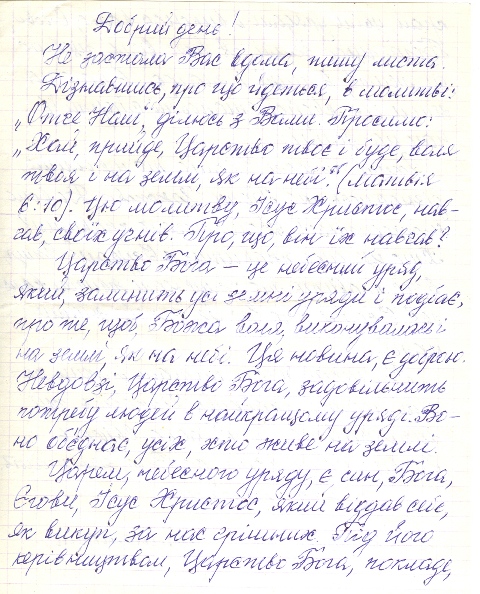 Добрий день!
Не застала Вас вдома, пишу листа.
Дізнавшись, про що йдеться, в молитві:
„Отче Наш", ділюсь з Вами. Просимо:
„Хай, прийде, Царство твоє і буде, воля
твоя і на землі, як на небі." (Матвія
6:10). Цю молитву, Ісус Христос, нав-
чав, своїх учнів. Про, що, він їх навчав?
Царство Бога – це небесний уряд,
який, замінить усі земні уряди і подбає,
про те, щоб, Божа воля, виконувалась і
на землі, як на небі. Ця новина, є доброю.
Невдовзі, Царство Бога, задовільнить
потребу людей в найкращому уряді. Во-
но обєднає, усіх, хто живе на землі.
Царем, небесного уряду, є син, Бога,
Єгови, Ісус Христос, який віддав себе,
як викуп, за нас грішних. Під його
керівництвом, Царство Бога, покладе,